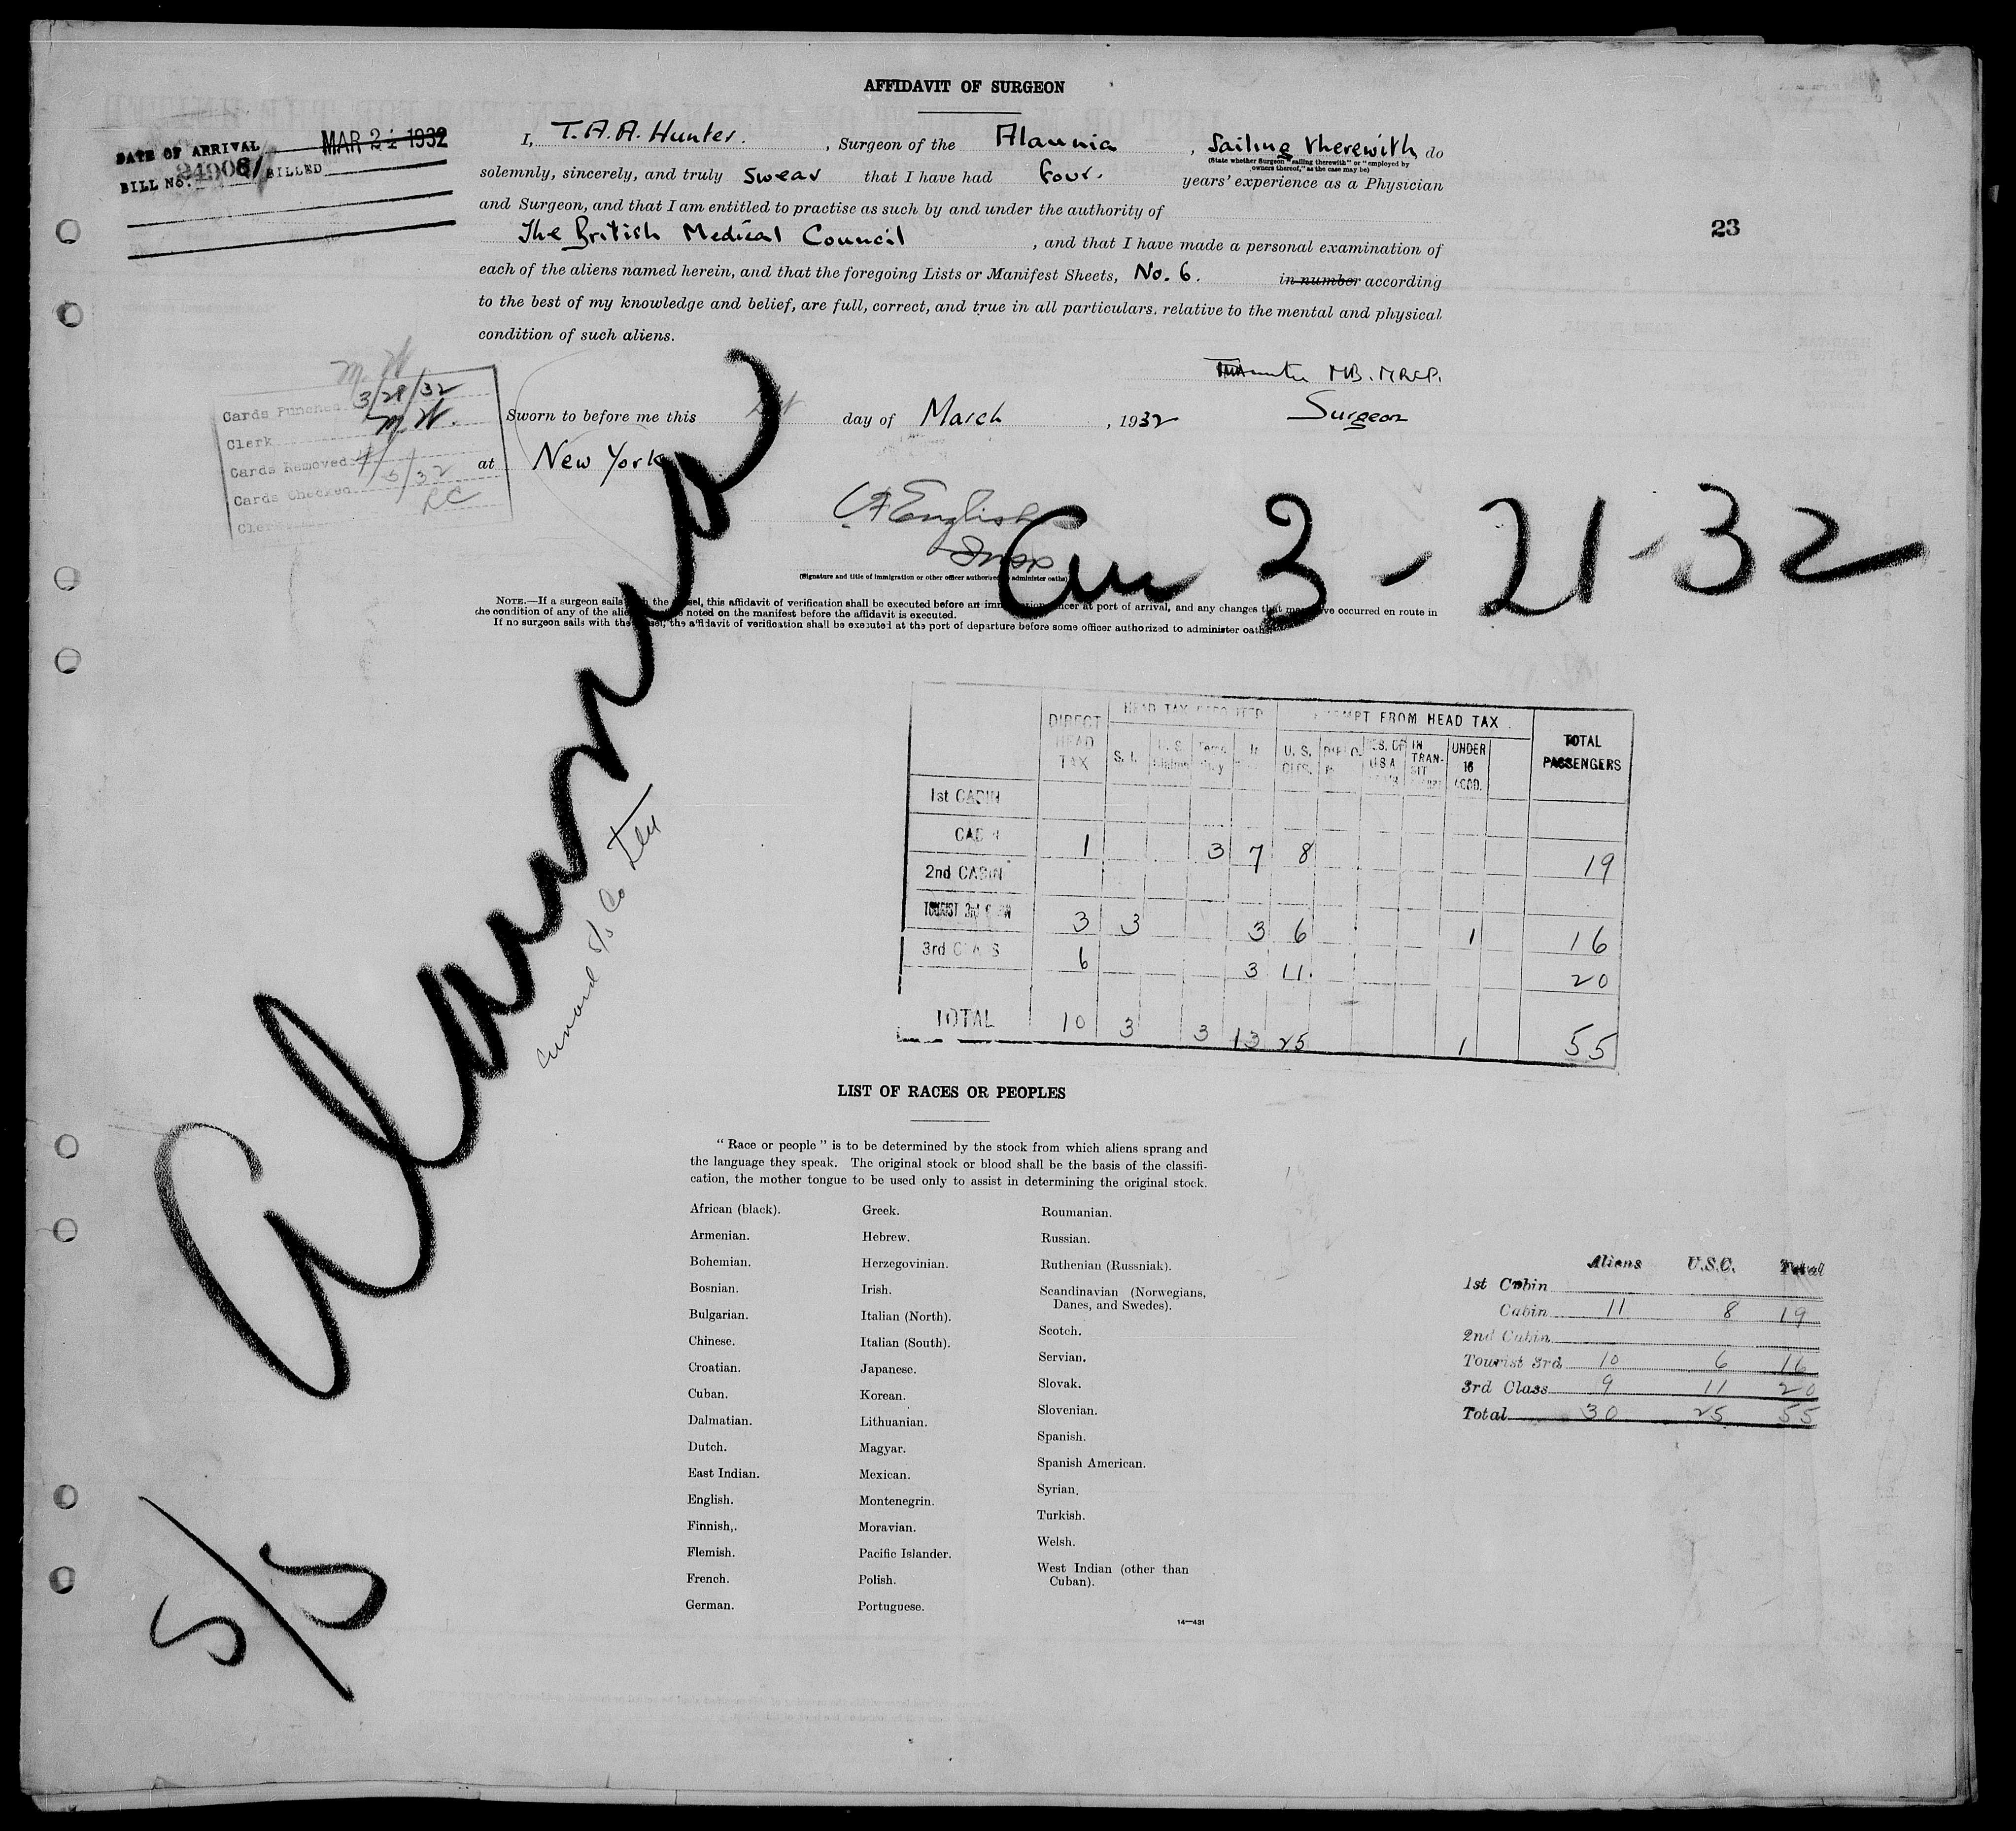 AFFIDAVIT OF SURGEON
DATE OF ARRIVAL MAR 21 1932
BILL No. BILLED
I, T.A.A. Hunter. , Surgeon of the Alaunia , Sailing therewith, do
(State whether Surgeon "sailing therewith" or "employed by owners thereof," as the case may be)
solemnly, sincerely, and truly swear that I have had four. years' experience as a Physician
and Surgeon, and that I am entitled to practise as such by and under the authority of
The British Medical Council , and that I have made a personal examination of
each of the aliens named herein, and that the foregoing Lists or Manifest Sheets, No. 6. in number according
to the best of my knowledge and belief, are full, correct, and true in all particulars. relative to the mental and physical
condition of such aliens.
23
Hunter MB. MRCP.
Surgeon
Sworn to before me this 21st day of March , 1932
at New York
M.W.
Cards Punched 3/28/32
Clerk M.W.
Cards Removed 4/5/32
Cards Checked RC
Clerk
English
Insp
(Signature and title of immigration or other officer authorized to administer oaths)
3-21-32
NOTE.—If a surgeon sails with the vessel, this affidavit of verification shall be executed before an immigration officer at port of arrival, and any changes that may have occurred en route in
the condition of any of the aliens noted on the manifest before the affidavit is executed.
If no surgeon sails with the vessel, the affidavit of verification shall be executed at the port of departure before some officer authorized to administer oaths.
Alaunia
Cunard S/S Co
S/S
DIRECT HEAD TAX
HEAD TAX
EXEMPT FROM HEAD TAX
TOTAL PASSENGERS
S. I. U. S. U. S. CITS. DIPLO. RES. OF U S A IN TRANSIT UNDER 16 ACCD.
1st CABIN
CABIN 1 3 7 8 19
2nd CABIN
TOURIST 3rd CABIN 3 3 3 6 1 16
3rd CLASS 6 3 11 20
TOTAL 10 3 3 13 25 1 55
LIST OF RACES OR PEOPLES
"Race or people" is to be determined by the stock from which aliens sprang and
the language they speak. The original stock or blood shall be the basis of the classifi-
cation, the mother tongue to be used only to assist in determining the original stock.
African (black).
Armenian.
Bohemian.
Bosnian.
Bulgarian.
Chinese.
Croatian.
Cuban.
Dalmatian.
Dutch.
East Indian.
English.
Finnish,.
Flemish.
French.
German.
Greek.
Hebrew.
Herzegovinian.
Irish.
Italian (North).
Italian (South).
Japanese.
Korean.
Lithuanian.
Magyar.
Mexican.
Montenegrin.
Moravian.
Pacific Islander.
Polish.
Portuguese.
Roumanian.
Russian.
Ruthenian (Russniak).
Scandinavian (Norwegians,
Danes, and Swedes).
Scotch.
Servian.
Slovak.
Slovenian.
Spanish.
Spanish American.
Syrian.
Turkish.
Welsh.
West Indian (other than
Cuban).
14—431
Aliens U.S.C. Total
1st Cabin
Cabin 11 8 19
2nd Cabin
Tourist 3rd 10 6 16
3rd Class 9 11 20
Total 30 25 55